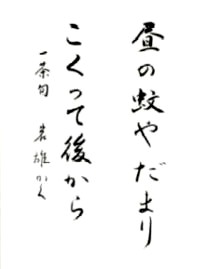 昼の蚊やだまり
こくって後から
一茶句 岩雄かく